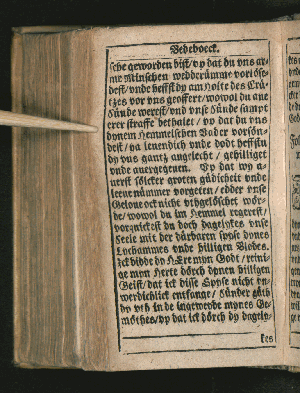 Bedeboeck.
sche geworden bist / vp dat du vns ar-
me Minschen wedderümme vorlöse-
dest / vnde heffst dy am Holte des Crü-
tzes vor vns geoffert / wowol du ane
Sünde werest / vnd vnse Sünde sampt
erer straffe betalet / vp dat du vns
dynem Hemmelschen Vader vorsön-
dest / ya leuendich vnde dodt heffstu
dy vns gantz / gehilliget
vnde auergegeuen. Vp dat wy a-
uerst sölcker groten güdicheit vnde
leue nümmer vorgeten / edder vnse
Geloue ock nicht vthgelöschet wör-
de / wowol du im Hemmel regerest /
vorquickest du doch dagelykes vnse
Seele mit der dürbaren Spyse dynes
Lychammes vnde hilligen Blodes.
Ick bidde dy HEre myn Godt / reini-
ge myn Herte dörch dynen hilligen
Geist / dat ick disse Spyse nicht vn-
werdichlick entfange / Sünder gath
dy vth in de ingeweyde mynes Ge-
möthes / vp dat ick dörch dy dagely-
kes